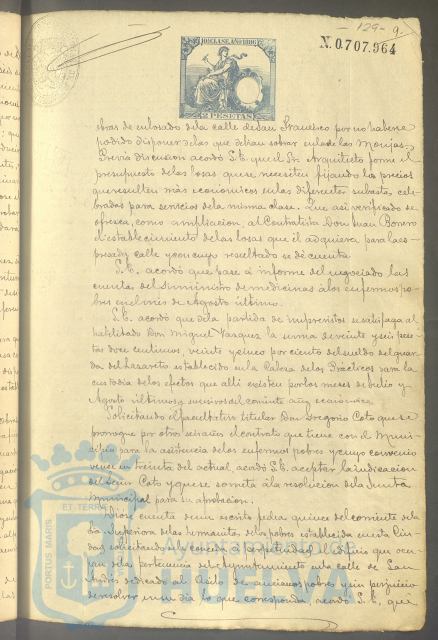 129-9.
10ª CLASE. AÑO 1886
N.0.707,964
2 PESETAS
obras de enlosado de la calle de San Francisco por no haberse
podido disponer de las que debian sobrar en la de las Monjas.
Previa discusion acordó S.E. que el Sr. Arquitecto forme el
presupuesto de las losas que se necesiten fijando los precios
que resulten más economicos en las diferentes subastas cele-
bradas para servicios de la misma clase. Que asi verificado se
ofrezca, como ampliacion al Contratista Don Juan Bonero
el establecimiento de las losas que él adquiera para la es-
presada calle y con cuyo resultado se dé cuenta.
S.E. acordó que pase á informe del negociado las
cuentas del suministro de medicinas á los enfermos po-
bres en el mes de Agosto último.
S.E. acordó que de la partida de imprevistos se satisfaga al
habilitado Don Miguel Vazquez la suma de veinte y seis pese-
tas doce centimos, veinte y cinco por ciento del sueldo del guar-
da del lazareto establecido en la Casera de los Practicos para la
custodia de los efectos que alli existen por los meses de Julio y
Agosto últimos y sucesivos del corriente año economico.
Solicitando el facultativo titular Don Gregorio Coto que se
prorrogue por otros seis años el contrato que tiene con el Muni-
cipio para la asistencia de los enfermos pobres y cuyo convenio
vence en treinta del actual, acordó S.E. aceptar la indicacion
del Señor Coto y que se someta á la resolucion de la Junta
Municipal para su aprobacion.
Diose cuenta de un escrito fecha quince del corriente de la
Superiora de las hermanitas de los pobres establecida en esta Ciu-
dad solicitando se le conceda á perpetuidad el edificio que ocu-
pan de la pertenencia del Ayuntamiento en la calle de San
Andrés dedicado al Asilo de ancianos pobres y sin perjuicio
de resolver en su dia lo que corresponda, acordó S.E. que
PORTUS MARIS ET TERRE
Ayuntamiento
HUELVA